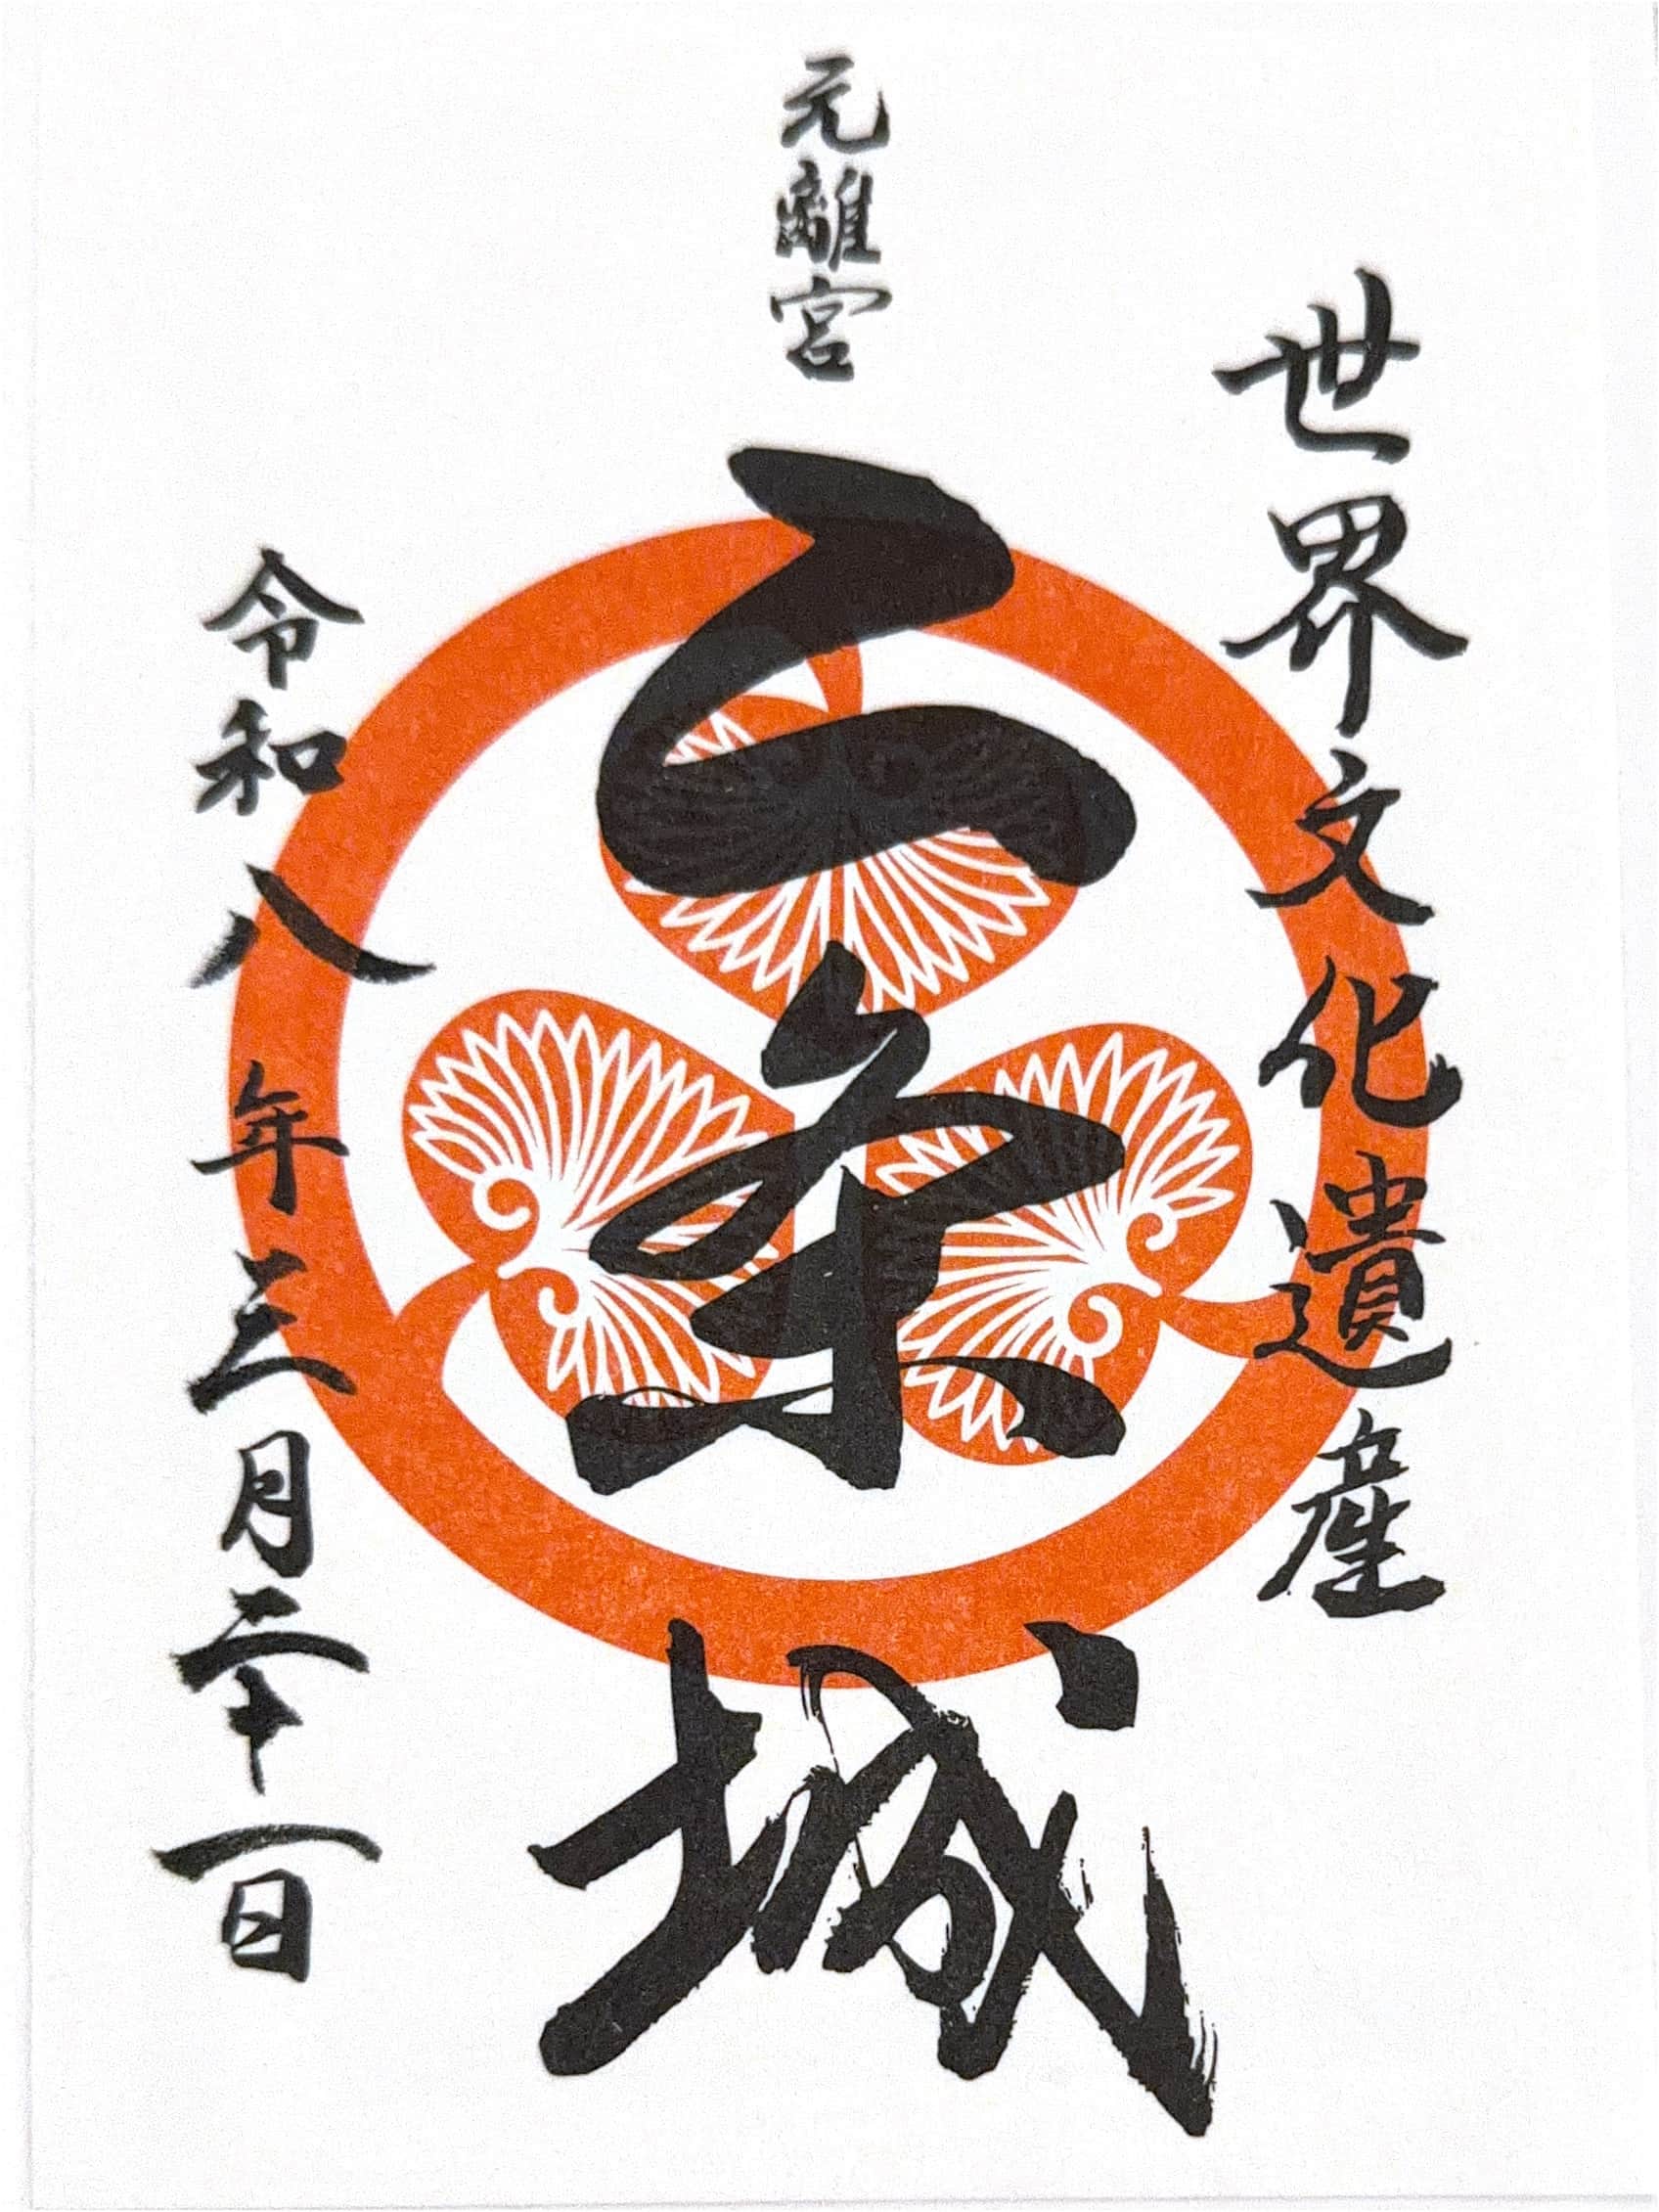 世界文化遺産
元離宮
二条城
令和八年三月二十一日